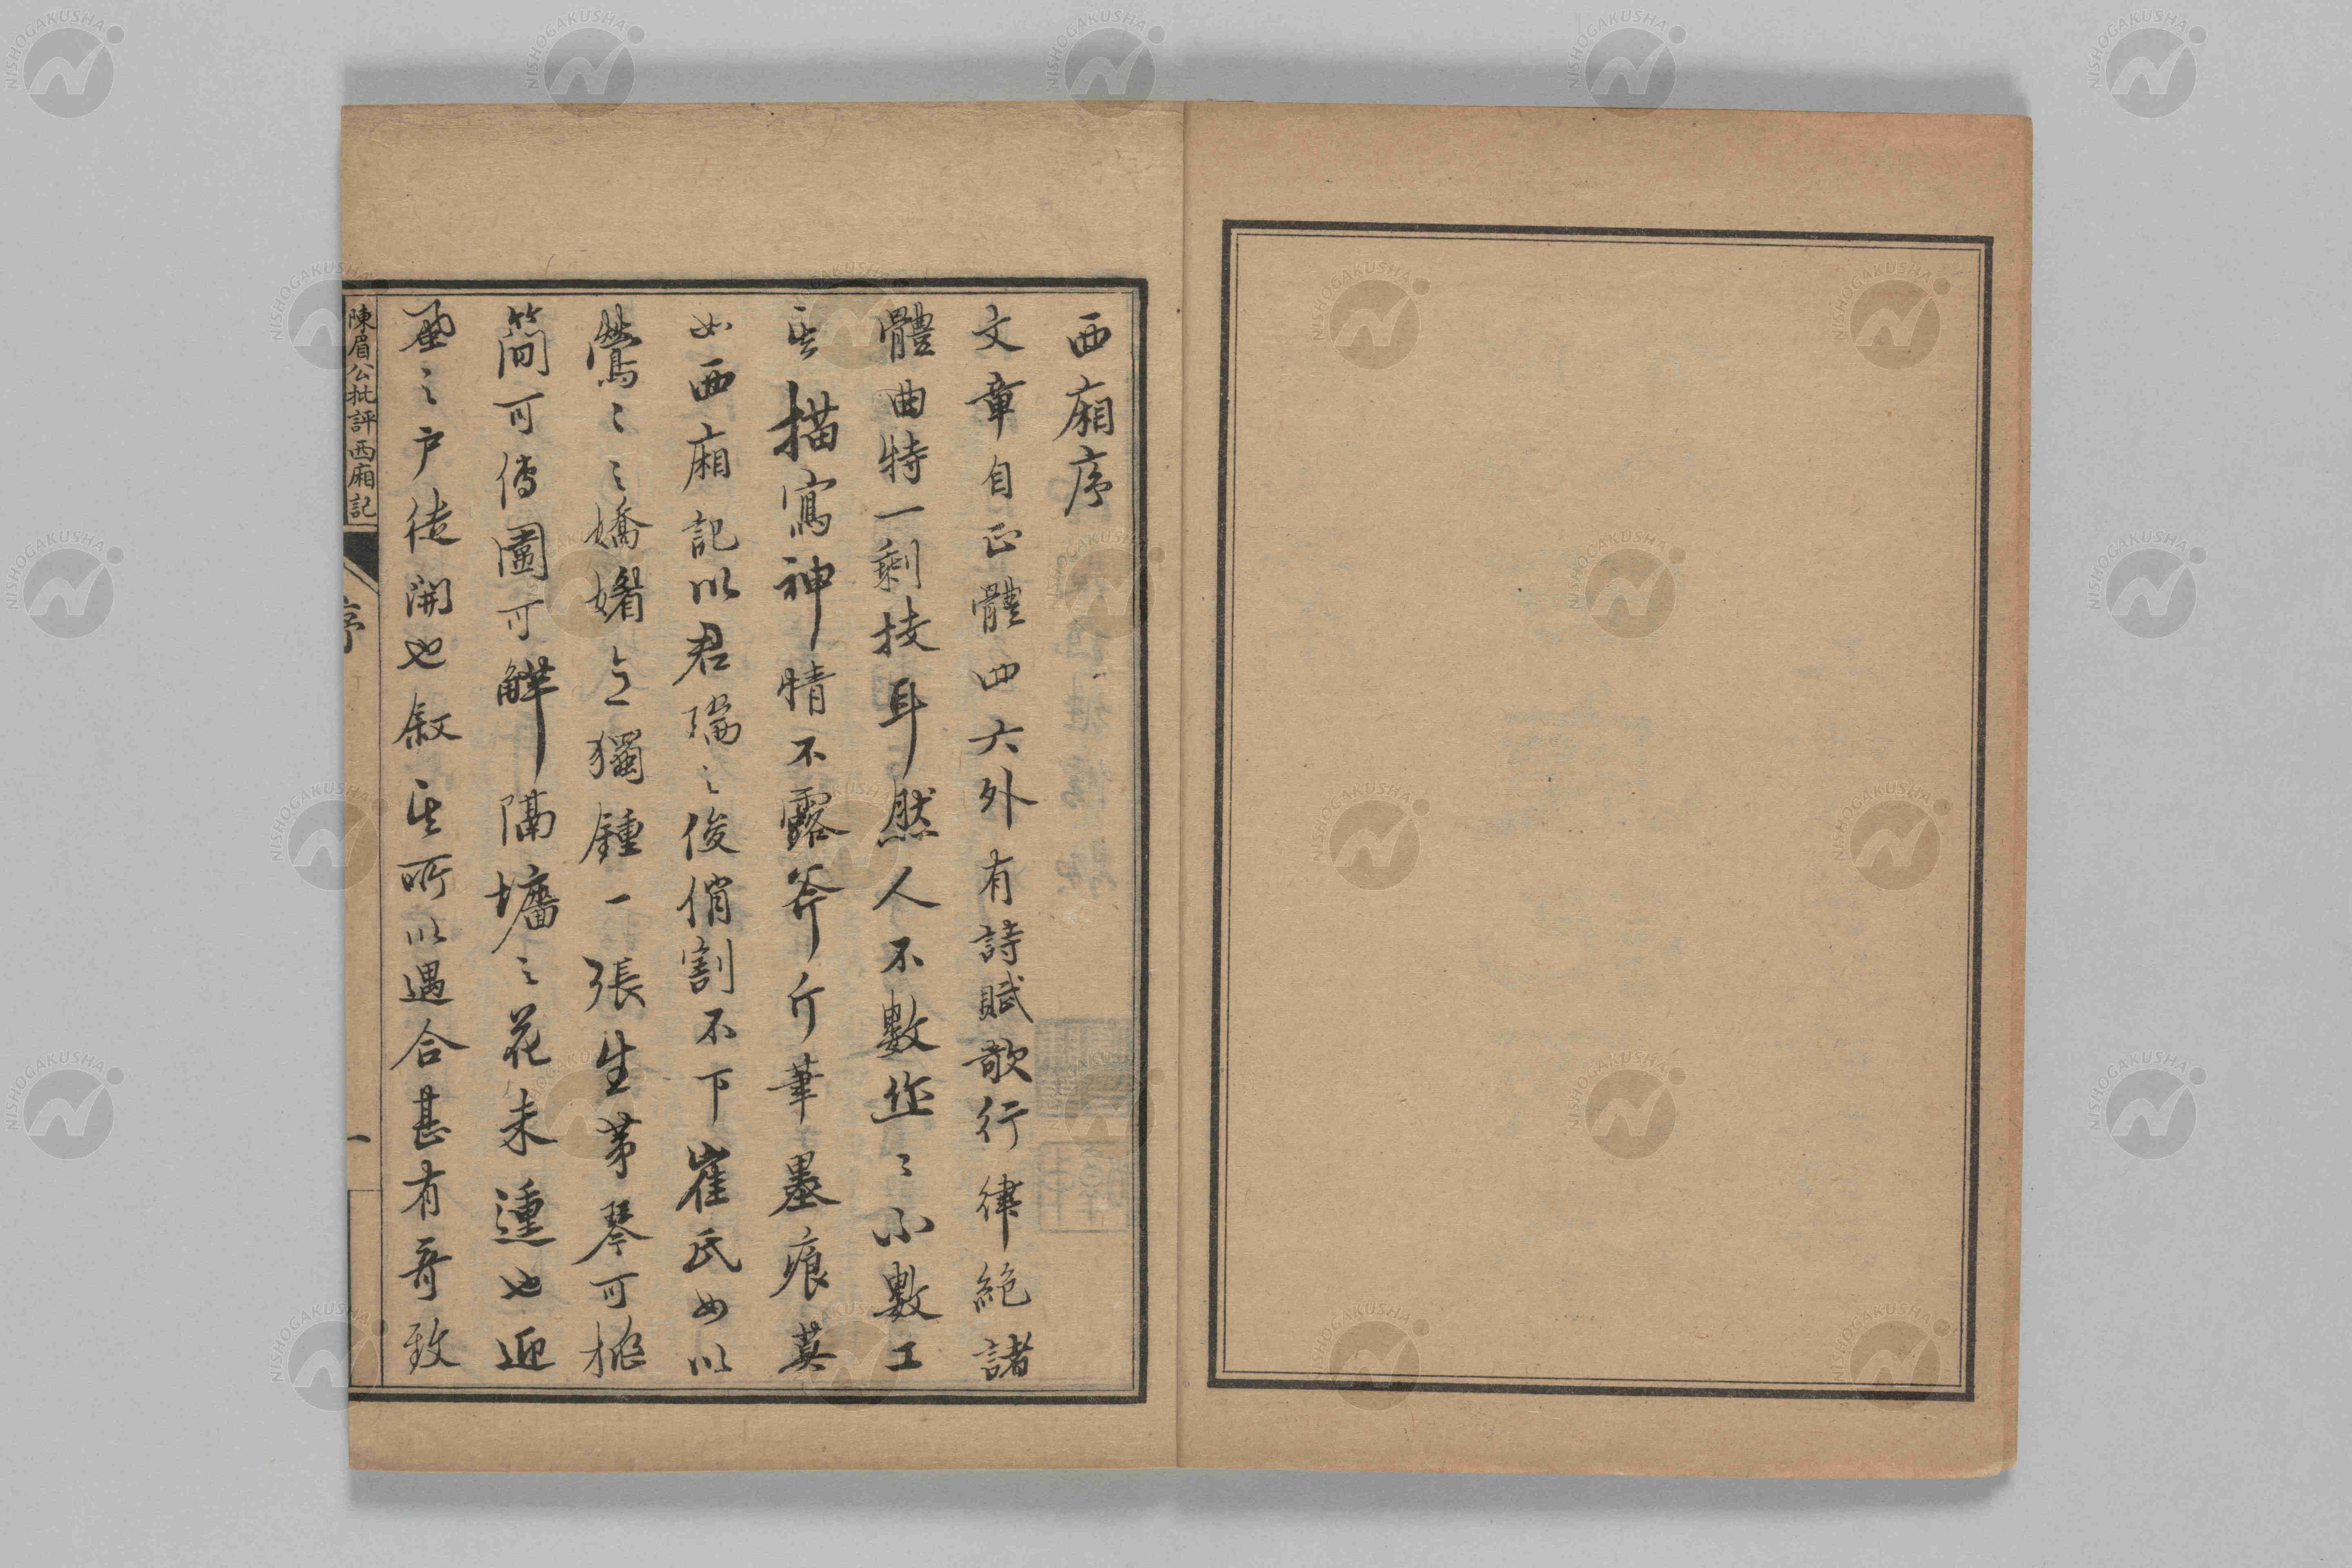 西廂序
文章自正體四六外有詩賦歌行律絕諸
體曲特一剩技耳然人不數作〻不數工
其描寫神情不露斧斤筆墨痕莫
如西廂記以君瑞之俊俏割不下崔氏女以
鶯〻之嬌媚意獨鍾一張生第琴可挑
簡可傳圍可解隔墻之花未動也迎
風之戶徒開也叙其所以遇合甚有奇致
陳眉公批評西廂記
序
一
NISHOGAKUSHA